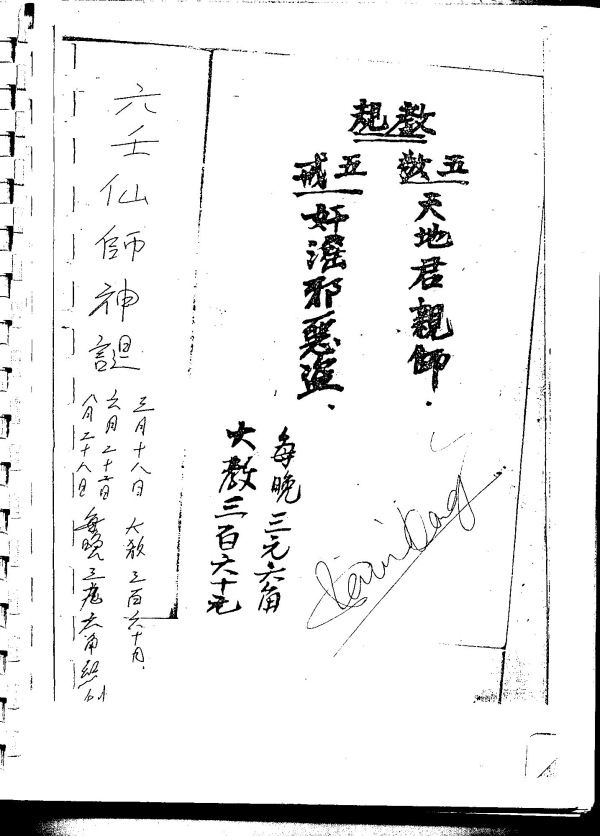 教規
五教 天地君親師.
五戒 奸淫邪惡盜.
每晚三元六角
大教三百六十元
六壬仙師神誕
三月十八日 大教三百六十元.
六月二十六日
八月二十八日 每晚三元六角